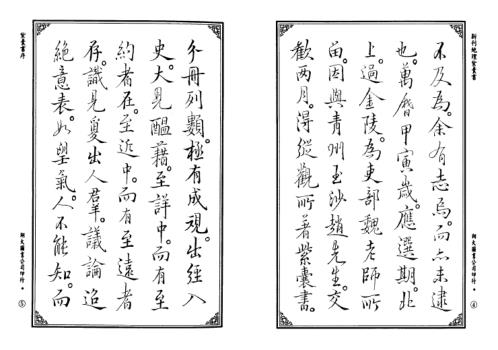 新刊地理紫囊書
不及為。余有志焉。而亦未逮
也。萬曆甲寅歲。應選期北
上。過金陵。為吏部魏老師所
畱。因與青州玉沙趙先生。交
歡两月。得縱觀所著紫囊書。
翔大圖書公司印行・④
分冊列類。極有成規。出經入
史大見醞藉。至詳中。而有至
約者在。至近中。而有至遠者
存。識見夐出人羣。議論迢
絕意表。如望氣。人不能知。而
紫囊書序
翔大圖書公司印行・⑤